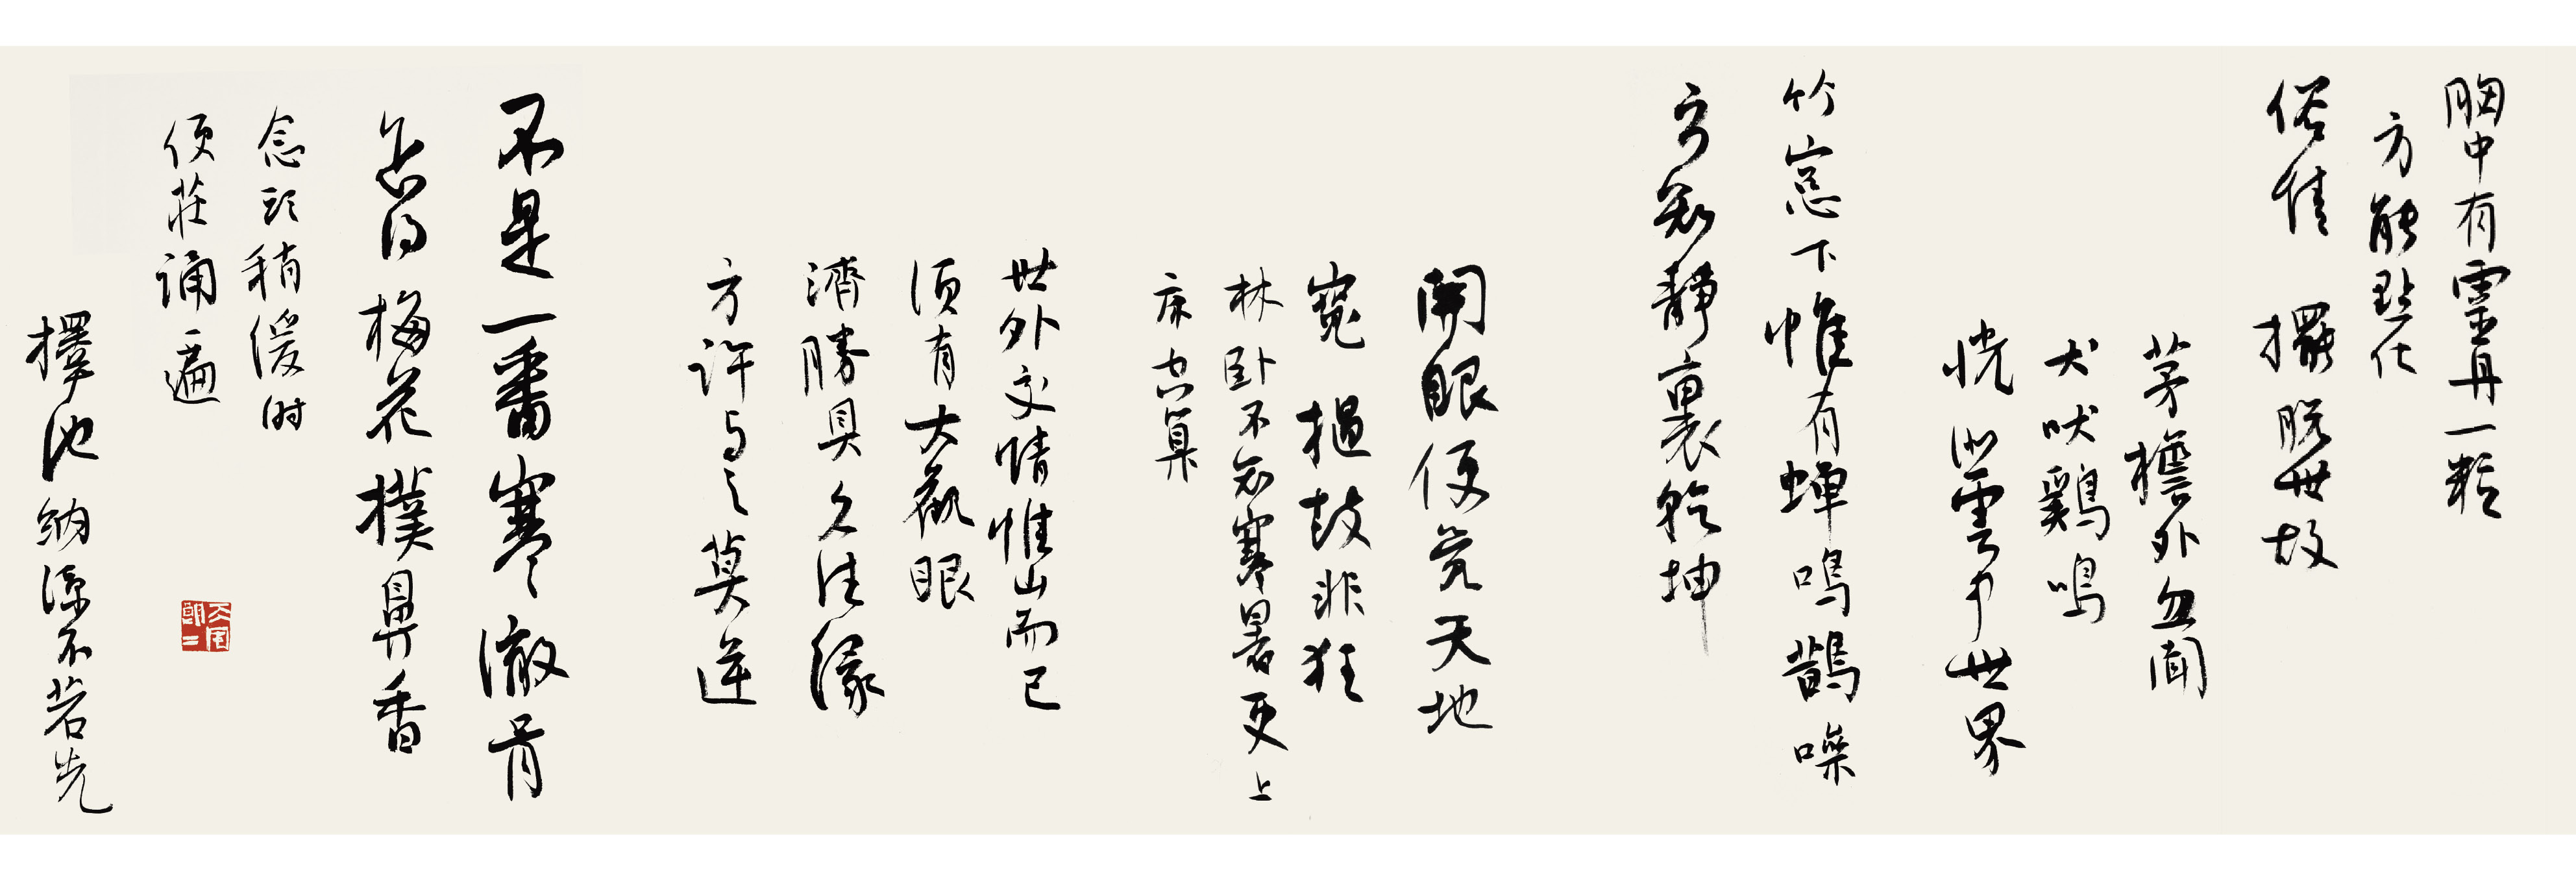 胸中有靈丹一粒
方能點化
俗情擺脱世故
茅檐外忽聞
犬吠鷄鳴
恍似雲中世界
竹窓下惟有蟬鳴鵲噪
方知静裏乾坤
開眼便覺天地
寬撾鼓非狂
林卧不知寒暑更上
床空算
世外交情惟山而已
須有大觀眼
濟勝具久住緣
方許与之莫逆
不是一番寒徹骨
怎得梅花撲鼻香
念頭稍緩时
便莊誦一遍
擇池納涼不若先